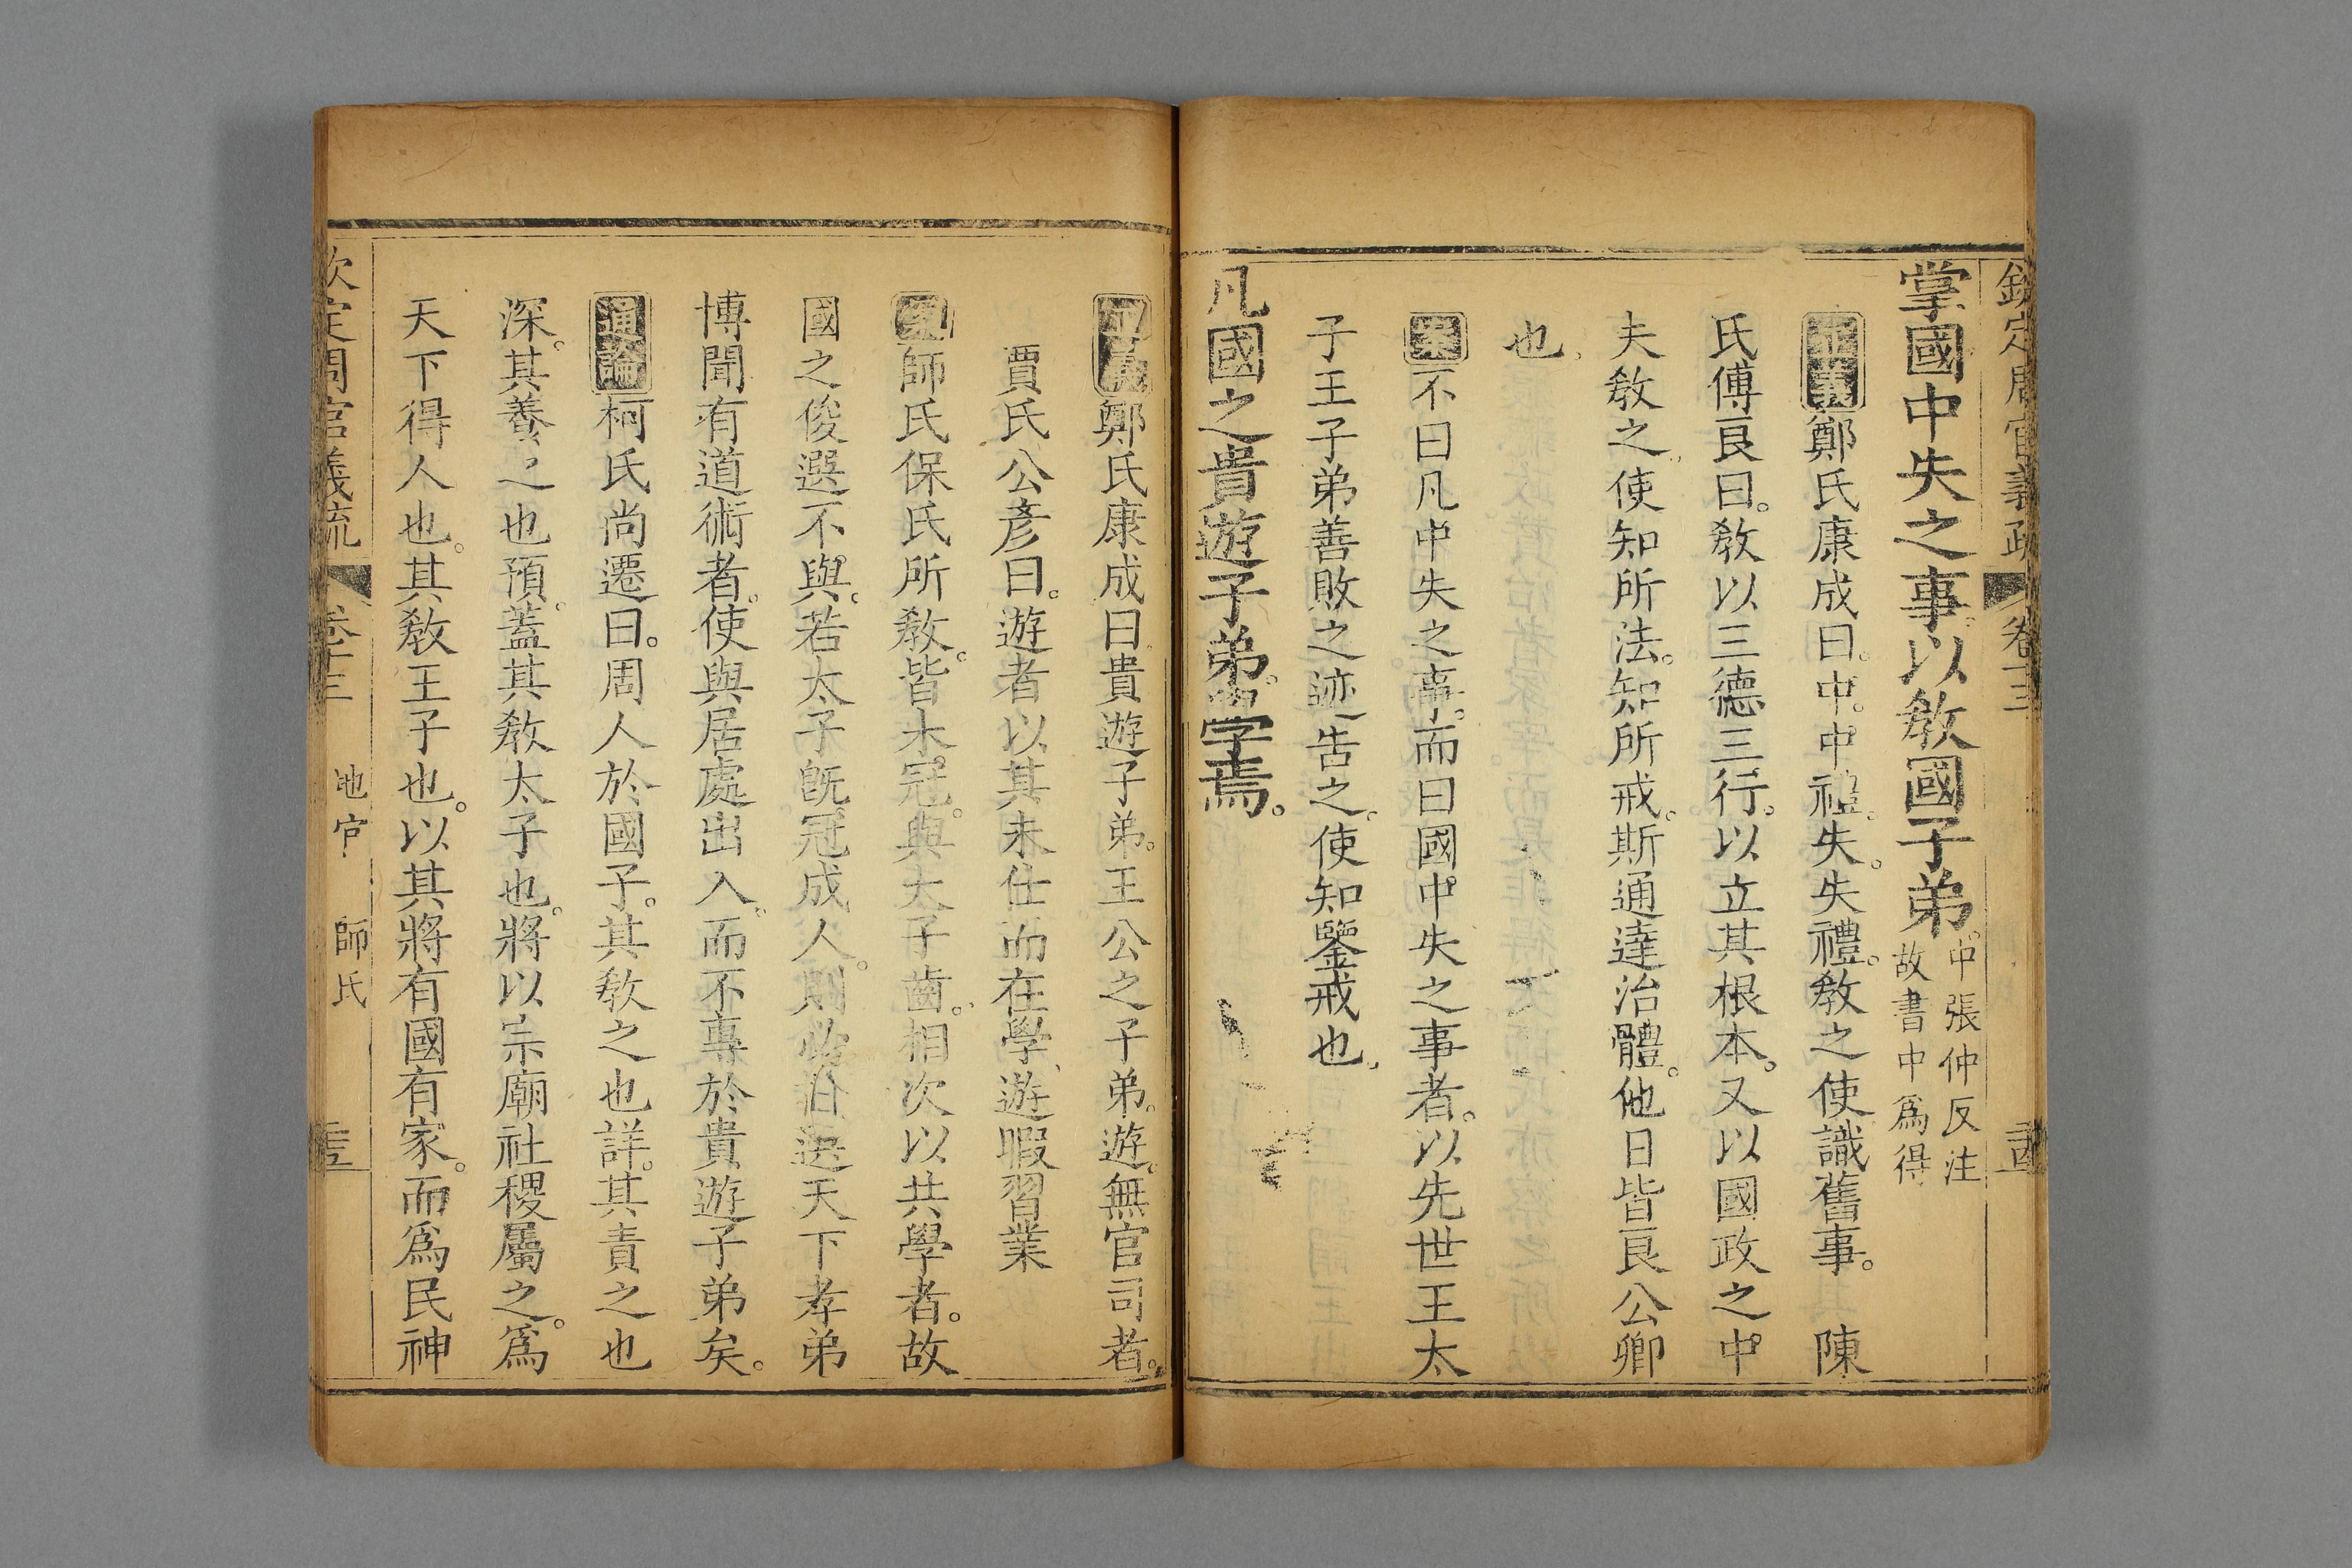 欽定周官義疏 卷十三
掌國中失之事以敎國子弟。中張仲反注
故書中爲得
正義鄭氏康成曰。中。中禮。失。失禮。敎之使識舊事。 陳
氏傅良曰。敎以三德三行。以立其根本。又以國政之中
夫敎之。使知所法。知所戒。斯通達治體。他日皆良公卿
也。
案不曰凡中失之事。而曰國中失之事者。以先世王太
子王子弟善敗之迹告之。使知鑒戒也。
凡國之貴遊子弟。學焉。
正義鄭氏康成曰。貴遊子弟。王公之子弟。遊。無官司者。
賈氏公彥曰。遊者以其未仕而在學。遊暇習業
案師氏保氏所敎。皆未冠。與太子齒。相次以共學者。故
國之俊選不與。若太子旣冠成人。則必 選天下孝弟
博聞有道術者。使與居處出入。而不專於貴遊子弟矣。
通論柯氏尚遷曰。周人於國子。其敎之也詳。其責之也
深。其養之也預。蓋其敎太子也。將以宗廟社稷屬之。爲
天下得人也。其敎王子也。以其將有國有家。而爲民神
欽定周官義疏 卷十三 地官 師氏